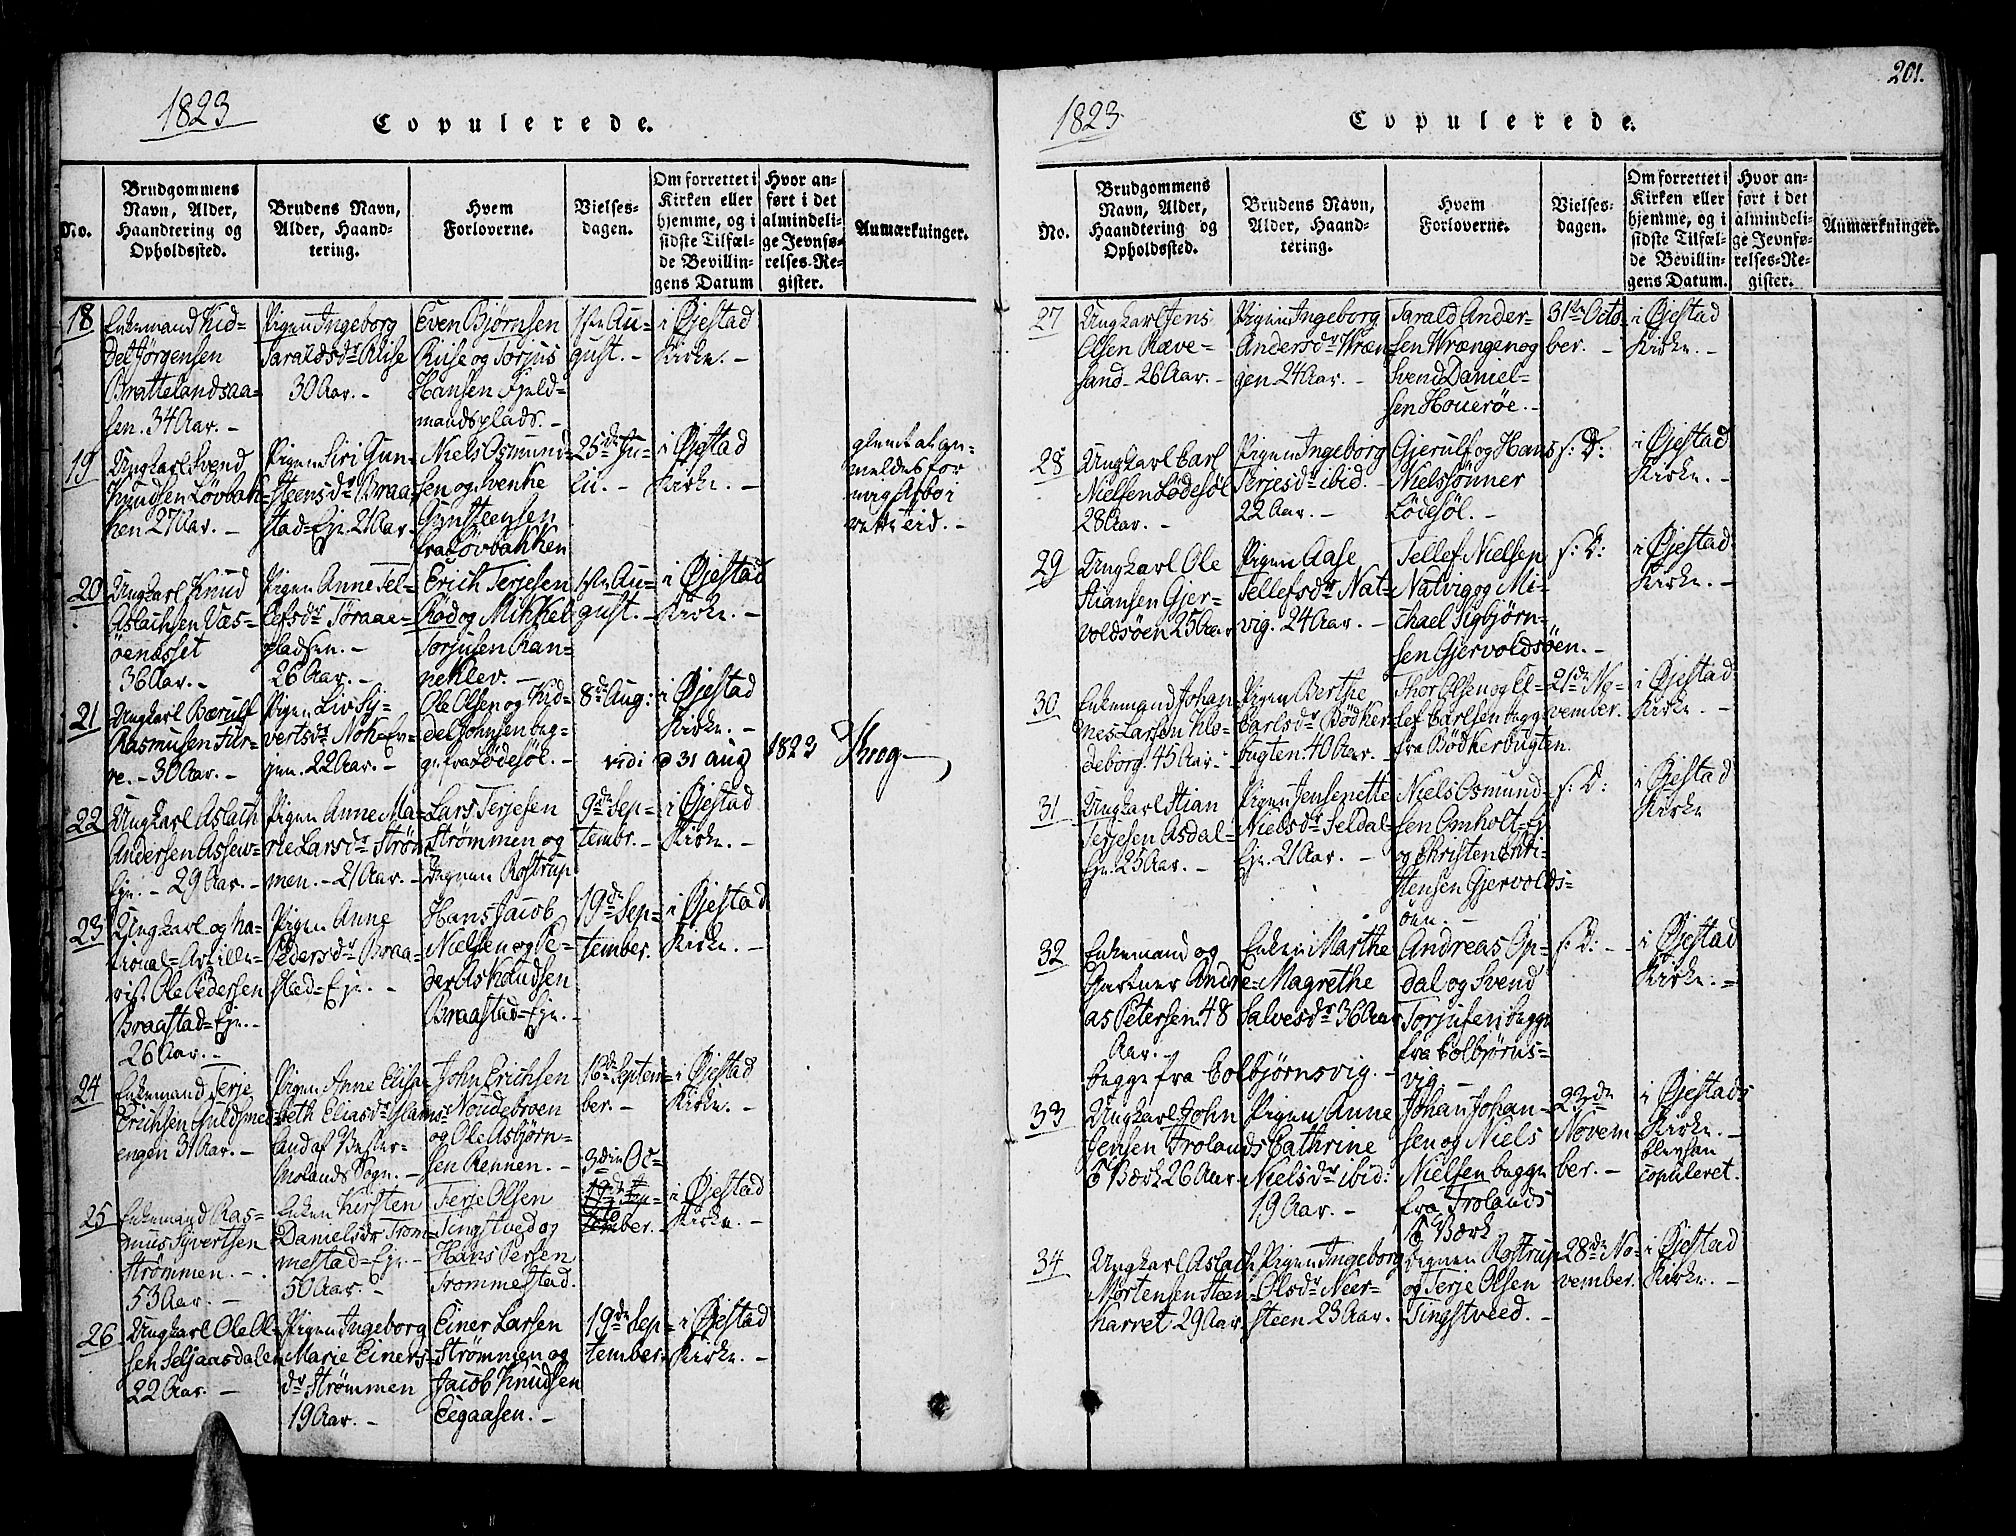 1823
Copulerede.
No.
Brudgommens
Navn, Alder,
Haandtering og
Opholdssted.
Brudens Navn,
Alder, Haand-
tering.
Hvem
Forloverne.
Vielses-
dagen.
Om forrettet i
Kirken eller
hjemme, og i
sidste Tilfæl-
de Bevillin-
gens Datum
Hvor an-
ført i det
almindeli-
ge Jevnfø-
relses-Re-
gister.
Anmærkninger.
18
Enkemand Kid-
del Jörgensen
Brattelandsaa-
sen. 34 Aar. -
Pigen Ingeborg
Taraldsdr Riise
30 Aar. -
Even Bjørnsen
Riise og Torjus
Hansen Fjeld-
mandsplads. -
1ste Au-
gust. -
i Øjestad
Kirke. -
19
Ungkarl Svend
Knudsen Løvbak-
ken 27 Aar. -
Pigen Siri Gun-
steensdr Braa-
stad-Eje. 21 Aar -
Niels Osmund-
sen og
Gunsteensen
fra Løvbakken
25de Ju-
lii. -
i Øjestad
Kirke. -
glemt at an-
meldes for
mig
20
Ungkarl Knud
Aslachsen Væs-
öenæsset
36 Aar. -
Pigen Anne Tel-
lefsdr Töraae-
pladsen. -
26 Aar. -
Erich Terjesen
Röd og Mikkel
Torjusen Ran-
neklev. -
1ste Au-
gust. -
i Øjestad
Kirke. -
21
Ungkarl Bærulf
Rasmusen Fur-
re. - 30 Aar. -
Pigen Liv Sy-
vertsdr
22 Aar. -
Ole Olsen og Kid-
del Johnsen beg-
ge fra Lödesöl. -
8de Aug:
i Øjestad
Kirke. -
vidi d 31 Aug 1823
22
Ungkarl Aslach
Andersen Assew-
Eje. - 29 Aar. -
Pigen Anne Ma-
rie Larsdr Ström-
men. - 21 Aar. -
Lars Terjesen
Strømmen og
Degnen Rostrup
9de Sep-
tembr. -
i Øjestad
Kirke. -
23
Ungkarl og na-
tional-Artille-
rist Ole Pedersen
Braastad-Eje. -
26 Aar. -
Pigen Anne
Pedersdr Braa-
stad-Eje. -
Hans Jacob
Nielsen og Pe-
der Aslaudsen
Braastad-Eje. -
19de Sep-
tember.
i Øjestad
Kirke. -
24
Enkemand Terje
Erichsen Guldsmed-
engen 31 Aar. -
Pigen Anne Elisa-
beth Eliasdr
af Vester-
Molands Sogn. -
John Erichsen
Noudebroen
og Ole Asbjørn-
sen Rennen. -
16de Septem-
ber. -
i Øjestad
Kirke. -
25
Enkemand Ras-
mus Syvertsen
Strømmen. -
53 Aar. -
Enken Kirsten
Danielsdr Trom-
mestad-Eje. -
50 Aar. -
Terje Olsen
Tingstved og
Hans Persen
Trommestad.
3die Oc-
i Øjestad
Kirke. -
26
Ungkarl Ole Ol-
sen Seljaasdalen
22 Aar. -
Pigen Ingeborg
Marie Einers-
dr Strømmen
19 Aar. -
Einer Larsen
Strømmen og
Jacob Knudsen
Eegaasen. -
19de Sep-
tember.
i Øjestad
Kirke. -
201.
1823
Copulerede.
No.
Brudgommens
Navn, Alder,
Haandtering og
Opholdssted.
Brudens Navn,
Alder, Haand-
tering.
Hvem
Forloverne.
Vielses-
dagen.
Om forrettet i
Kirken eller
hjemme, og i
sidste Tilfæl-
de Bevillin-
gens Datum.
Hvor an-
ført i det
almindeli-
ge Jevnfø-
relses-Re-
gister.
Anmærkninger.
27
Ungkarl Jens
Olsen Ræve-
sand 26 Aar. -
Pigen Ingeborg
Andersdr Wræn-
gen 24 Aar. -
Tarald Ander-
sen Wrængen og
Svend Daniel-
sen Houerøe. -
31te Octo-
ber. -
i Øjestad
Kirke. -
28
Ungkarl Carl
Nielsen Lödesöl
28 Aar. -
Pigen Ingeborg
Terjesdr ibid. -
22 Aar. -
Gjerulf og Hans
Nielssönner
Lödesöl. -
s: D:
i Øjestad
Kirke. -
29
Ungkarl Ole
Stiansen Gjer-
voldsöen 25 Aar
Pigen Aase
Tellefsdr Nat-
vig. 24 Aar. -
Tellef Nielsen
Natvig og Mi-
chael Sigbjörn-
sen Gjervoldsöen. -
s: D:
i Øjestad
Kirke. -
30
Enkemand Johan-
nes Larsen Klo-
deborg. 45 Aar. -
Pigen Berthe
Carlsdr Bödker-
bugten. 40 Aar. -
Thor Olsen og El-
lef Carlsen begge
fra Bödkerbugten.
21de No-
vember.
i Øjestad
Kirke. -
31
Ungkarl Stian
Terjesen Asdal-
Eje. 25 Aar. -
Pigen Jensenette
Nielsdr Seldal-
Eje. 21 Aar. -
Niels Osmund-
sen Omholt-Ej
og Christen Chri-
stensen Gjervolds-
öen. -
s: D:
i Øjestad
Kirke
32
Enkemand og
Gartner Andre-
as Petersen. 48
Aar. -
Enken Marthe
Magrethe
Salvesdr 36 Aar
begge fra Colbjørnsvig. -
Andreas Op-
dal og Svend
Torjusen begge
fra Colbjørns-
vig -
s: D: -
i Øjestad
Kirke. -
33
Ungkarl John
Jensen Frolands
Værk 26 Aar
Pigen Anne
Cathrine
Nielsdr ibid:
19 Aar. -
Johan Johan-
sen og Niels
Nielsen begge
fra Frolands
Værk
23de
Novem-
ber. -
i Øjestads
Kirke. -
blev han
copuleret.
34
Ungkarl Aslach
Mortensen Steen-
Karret 29 Aar.
Pigen Ingeborg
Olsdr Neer-
steen 23 Aar.
Degnen Rostrup
og Terje Olsen
Tingstveed. -
28de No-
vember.
i Øjestad
Kirke. -